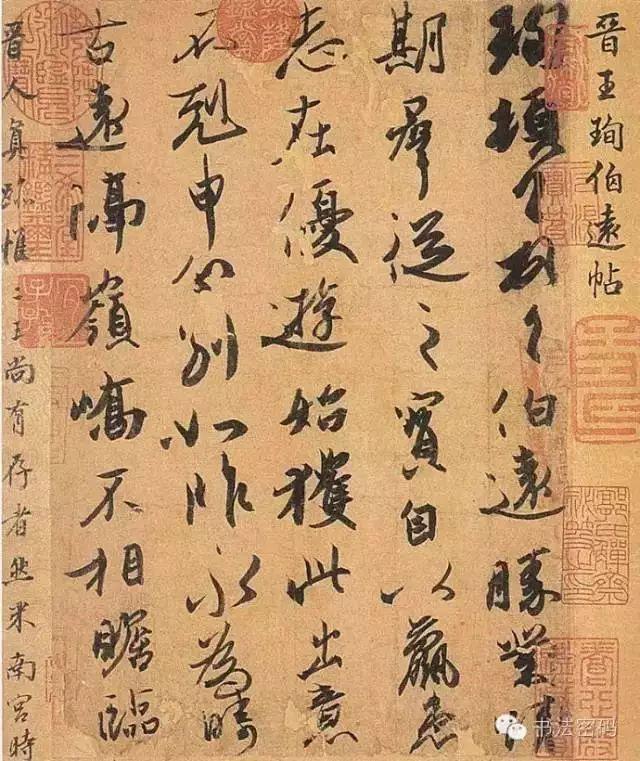 晋王珣伯遠帖
珣頓首頓首伯遠勝業情
期群從之寶自以羸患
志在優遊始獲此出意
不剋申分别如昨永為疇
古遠隔嶺嶠不相瞻臨
晋人真跡惟二王尚有存者然米南宮時
书法密码